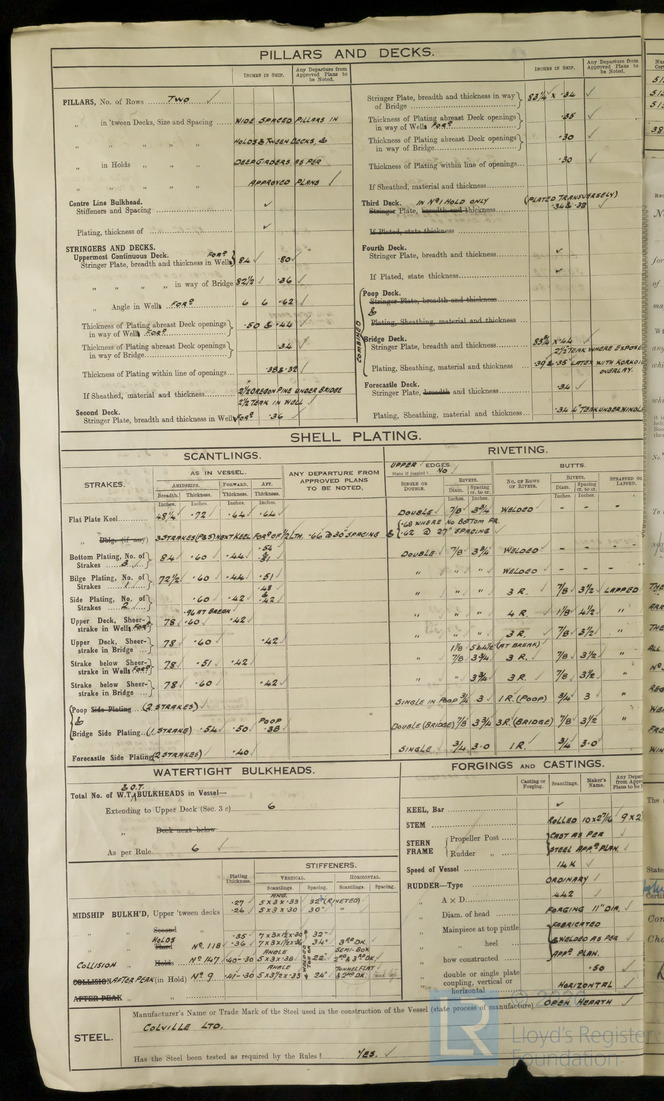 PILLARS AND DECKS.
INCHES IN SHIP.
Any Departure from Approved Plans to be Noted.
PILLARS, No. of Rows TWO
„ in 'tween Decks, Size and Spacing WIDE SPACED PILLARS IN
HOLDS & TWEEN DECKS, &
„ in Holds „ „ DEEP GIRDERS AS PER
APPROVED PLANS
Centre Line Bulkhead.
Stiffeners and Spacing
Plating, thickness of
STRINGERS AND DECKS.
Uppermost Continuous Deck.
Stringer Plate, breadth and thickness in Wells FOR? 84 .80
„ „ „ „ in way of Bridge 82½ .36
„ Angle in Wells FOR? 6 6 .62
Thickness of Plating abreast Deck openings in way of Wells FOR? .50 & .44
Thickness of Plating abreast Deck openings in way of Bridge .34
Thickness of Plating within line of openings
If Sheathed, material and thickness 2½ OREGON PINE UNDER BRIDGE
2½ TEAK IN WELL
Second Deck.
Stringer Plate, breadth and thickness in Wells FOR? .36
INCHES IN SHIP.
Any Departure from Approved Plans to be Noted.
Stringer Plate, breadth and thickness in way of Bridge 83¼ x .34
Thickness of Plating abreast Deck openings in way of Wells FOR? .35
Thickness of Plating abreast Deck openings in way of Bridge .30
Thickness of Plating within line of openings .30
If Sheathed, material and thickness
Third Deck. IN Nº1 HOLD ONLY (PLATED TRANSVERSELY)
Stringer Plate, breadth and thickness .34 & .38
If Plated, state thickness
Fourth Deck.
Stringer Plate, breadth and thickness
If Plated, state thickness
Poop Deck.
Stringer Plate, breadth and thickness
&
Plating, Sheathing, material and thickness
COMBINED
Bridge Deck.
Stringer Plate, breadth and thickness
2½ TEAK WHERE EXPOSED
Plating, Sheathing, material and thickness
OVERLAY.
Forecastle Deck.
Stringer Plate, breadth and thickness .34
Plating, Sheathing, material and thickness
SHELL PLATING.
SCANTLINGS.
RIVETING.
STRAKES.
AS IN VESSEL.
AMIDSHIPS.
FORWARD.
AFT.
Breadth.
Thickness.
Thickness.
Thickness.
Inches.
Inches.
Inches.
Inches.
ANY DEPARTURE FROM APPROVED PLANS TO BE NOTED.
UPPER EDGES.
State if joggled? NO
SINGLE OR DOUBLE.
RIVETS.
Diam.
Spacing cr. to cr.
BUTTS.
NO. OF ROWS OF RIVETS.
RIVETS.
Diam.
Spacing cr. to cr.
STRAPPED OR LAPPED.
Flat Plate Keel 48¼ .72 .64 .64 DOUBLE 7/8 3¾ WELDED - -
„ Dblg. (if any)
Bottom Plating, No. of Strakes 3 84 .60 .44 DOUBLE 7/8 3¾ WELDED - - -
Bilge Plating, No. of Strakes 1 72½ .60 .44 .51 „ „ „ WELDED - - -
Side Plating, No. of Strakes 2 .60 .42 .42 „ „ „ 3 R. 7/8 3½ LAPPED
.96 AT BREAK
Upper Deck, Sheerstrake in Wells FOR? 78 .60 .42 „ „ „ 4 R. 1⅛ 4½ „
Upper Deck, Sheerstrake in Bridge 78 .60 .42 „ „ „ 3 R. 7/8 3½ „
Strake below Sheerstrake in Wells FOR? 78 .51 .42 „ 7/8 3¾ 3 R. 7/8 3½ „
Strake below Sheerstrake in Bridge 78 .60 .42 „ „ 3¾ 3 R. 7/8 3½ „
Poop Side Plating (2 STRAKES) SINGLE IN POOP ¾ 3 1 R. (POOP) ¾ 3 „
&
POOP
Bridge Side Plating (1 STRAKE) .54 .50 .38 DOUBLE (BRIDGE) 7/8 3¾ 3 R. (BRIDGE) 7/8 3½ „
Forecastle Side Plating (2 STRAKES) .40 SINGLE ¾ 3.0 1 R. ¾ 3.0 „
WATERTIGHT BULKHEADS.
& O.T.
Total No. of W.T. BULKHEADS in Vessel—
Extending to Upper Deck (Sec. 3 c) 6
„ Deck next below
As per Rule 6
Plating Thickness.
STIFFENERS.
VERTICAL.
HORIZONTAL.
Scantlings.
Spacing.
Scantlings.
Spacing.
MIDSHIP BULKH'D, Upper 'tween decks .27 5 x 3 x .33 32" (RIVETED)
„ .26 5 x 3 x .30 30"
„ Second
HOLDS
„ Third Nº. 118 .36 34" 3RD DK
COLLISION „ Hold Nº 147 .40-.30 5 x 3 x .38 22"
COLLISION AFTER PEAK (in Hold) Nº 9 24" 2ND DK
AFTER PEAK
FORGINGS AND CASTINGS.
Casting or Forging.
Scantlings.
Maker's Name.
KEEL, Bar
STEM ROLLED 10 x 2 7/16
STERN FRAME
Propeller Post CAST AS PER
Rudder „ STEEL APPD PLAN.
Speed of Vessel 14 K
RUDDER—Type ORDINARY
„ A x D 442
„ Diam. of head FORGING 11" DIA.
„ Mainpiece at top pintle FABRICATED
„ „ heel & WELDED AS PER
„ how constructed APPD PLAN.
„ double or single plate .50
coupling, vertical or horizontal HORIZONTAL
STEEL.
Manufacturer's Name or Trade Mark of the Steel used in the construction of the Vessel (state process of manufacture) OPEN HEARTH
COLVILLE LTD.
Has the Steel been tested as required by the Rules? YES.
LR
Lloyd's Register
Foundation